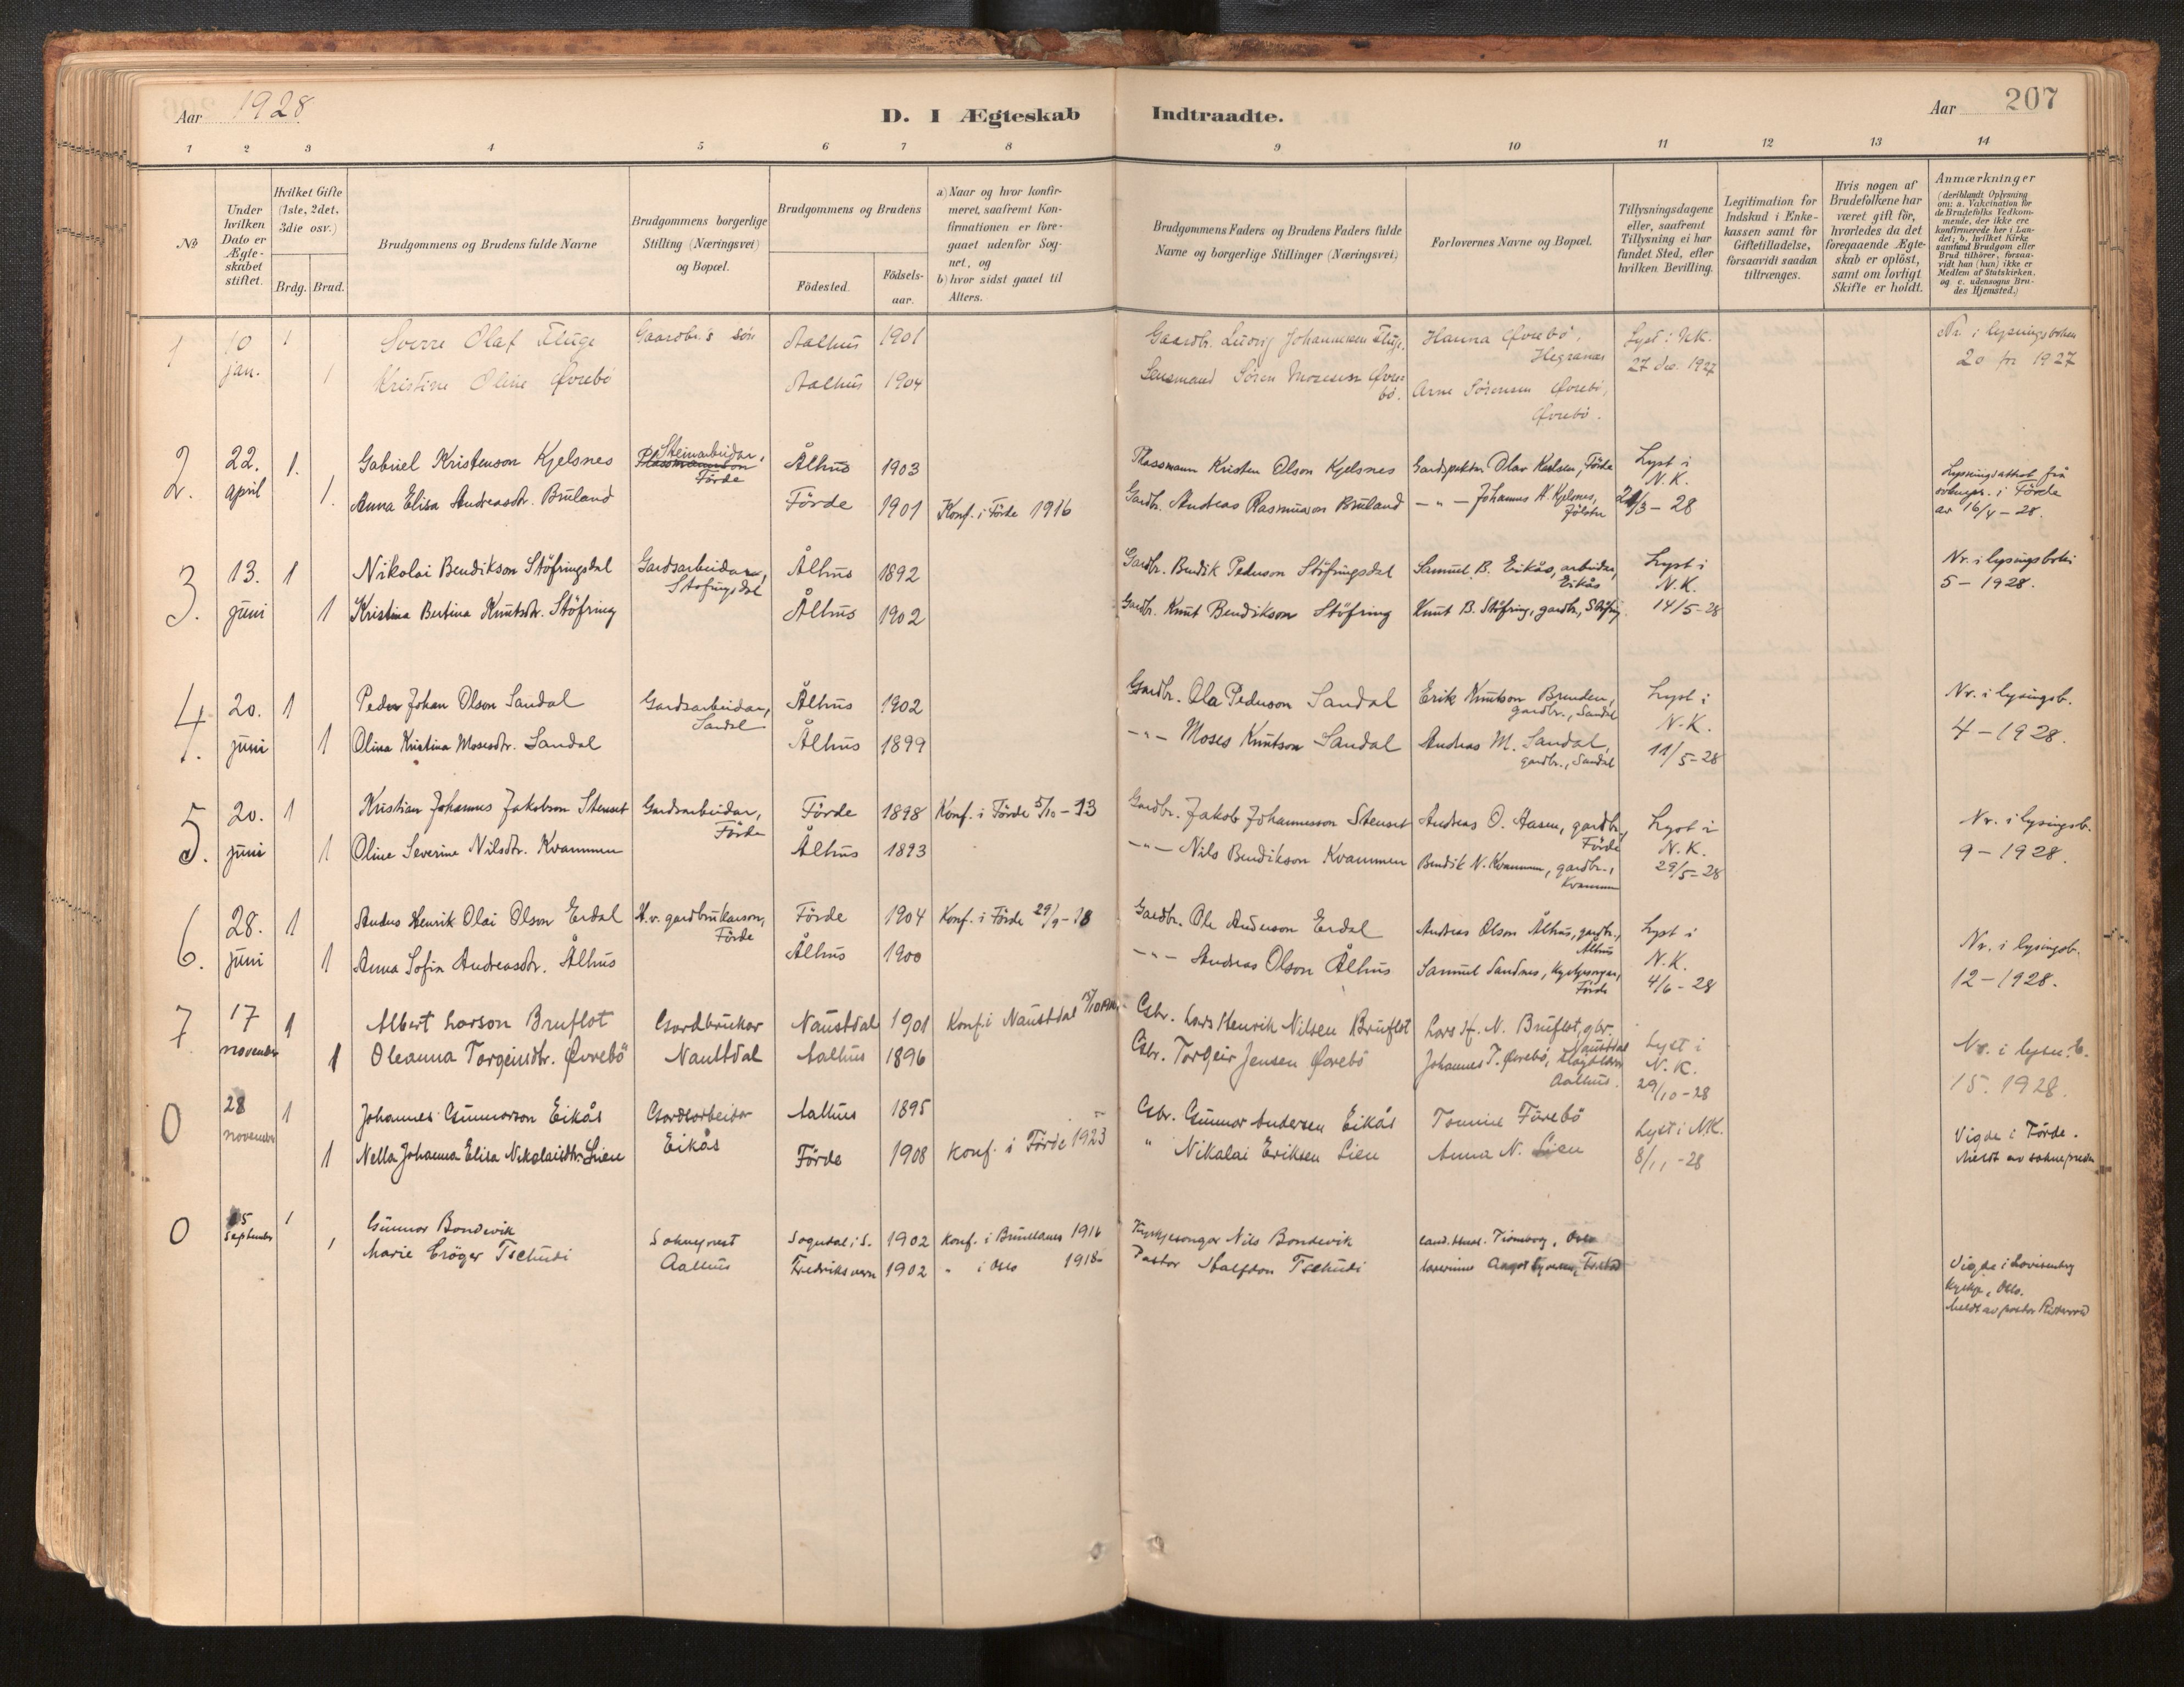 Aar 1928.
D. I Ægteskab Indtraadte.
Aar 207
1 2 3 4 5 6 7 8 9 10 11 12 13 14
No
Under hvilken Dato er Ægteskabet stiftet.
Hvilket Gifte (1ste, 2det, 3die osv.)
Brdg. Brud.
Brudgommens og Brudens fulde Navne
Brudgommens borgerlige Stilling (Næringsvei) og Bopæl.
Brudgommens og Brudens
Födested.
Födsels-aar.
a) Naar og hvor konfirmeret, saafremt Konfirmationen er foregaaet udenfor Sognet, og
b) hvor sidst gaaet til Alters.
Brudgommens Faders og Brudens Faders fulde Navne og borgerlige Stillinger (Næringsvei)
Forlovernes Navne og Bopæl.
Tillysningsdagene eller, saafremt Tillysning ei har fundet Sted, efter hvilken Bevilling.
Legitimation for Indskud i Enkekassen samt for Giftetilladelse, forsaavidt saadan tiltrænges.
Hvis nogen af Brudefolkene har været gift för, hvorledes du det foregaaende Ægteskab er oplöst, samt om lovligt Skifte er holdt.
Anmærkninger
(deriblandt Oplysning om: a. Vakcination for de Brudefolks Vedkommende, der ikke ere konfirmerede her i Landet; b. hvilket Kirkesamfund Brudgom eller Brud tilhörer, forsaavidt han (hun) ikke er Medlem af Statskirken, og c. udensogns Brudes Hjemsted.)
1 10 jan. 1 Sverre Olaf Fluge Gaardbr.s sön Aalhus 1901 Gaardbr. Ludvig Johannesen Fluge. Hanna Øvrebö, Hegranes Lyst i N.K. 27 des. 1927 Nr. i lysningsboken 20 for 1927
1 Kristine Oline Øvrebö Aalhus 1904 Lensmand Sören Mosessen Øvrebö. Arne Sörensen Øvrebö, Øvrebö.
2. 22. april 1. Gabriel Kristenson Kjelsnes Plassmannson Steinarbeidar, Förde Ålhus 1903 Plassmann Kristen Olson Kjelsnes Gardspaktar Olav Karlsen, Förde Lyst i N.K. 21/3 - 28 Lysningsattest frå soknepr. i Förde av 16/4 - 28.
1. Anna Elisa Andreasdtr. Bruland Förde 1901 Konf. i Förde 1916 Gardbr. Andreas Rasmusson Bruland - " - Johannes K. Kjelsnes, Jölster
3. 13. juni 1 Nikolai Bendikson Stöfringsdal Gardsarbeidar, Stöfringsdal Ålhus 1892 Gardbr. Bendik Pederson Stöfringsdal Samuel B. Eikås, arbeidar, Eikås Lyst i N.K. 14/5 - 28 Nr. i lysingsboki 5 - 1928.
1 Kristina Bertina Knutsdtr. Stöfring Ålhus 1902 Gardbr. Knut Bendikson Stöfring Knut B. Stöfring, gardbr., Stöfring
4. 20. juni 1 Peder Johan Olson Sandal Gardsarbeidar, Sandal Ålhus 1902 Gardbr. Ola Pederson Sandal Erik Knutson Brenden, gardbr., Sandal Lyst i N.K. 11/5 - 28 Nr. i lysingsb. 4 - 1928.
1 Olina Kristina Mosesdtr. Sandal Ålhus 1899 - " - Moses Knutson Sandal Andreas M. Sandal, gardbr., Sandal
5. 20. juni 1 Kristian Johannes Jakobson Stenset Gardsarbeidar, Förde Förde 1898 Konf. i Förde 5/10 - 13 Gardbr. Jakob Johannesson Stenset Andreas O. Aasen, gardbr., Förde Lyst i N.K. 29/5 - 28 Nr. i lysingsb. 9 - 1928.
1 Oline Severine Nilsdtr. Kvammen Ålhus 1893 - " - Nils Bendikson Kvammen Bendik N. Kvammen, gardbr., Kvammen
6. 28. juni 1 Anders Henrik Olai Olson Erdal H.v. gardbrukarson, Förde Förde 1904 Konf. i Förde 29/9 - 18 Gardbr. Ole Anderson Erdal Andreas Olson Ålhus, gardbr., Ålhus Lyst i N.K. 4/6 - 28 Nr. i lysingsb. 12 - 1928.
1 Anna Sofia Andreasdtr. Ålhus Ålhus 1900 - " - Andreas Olson Ålhus Samuel Sandnes, kyrkjesongar, Förde
7 17 november 1 Albert Larson Bruflot Gardbrukar Naustdal 1901 Konf. i Naustdal Gbr. Lars Henrik Nilsen Bruflot Lars H. N. Bruflot, gbr. Naustdal Lyst i N.K. 29/10 - 28 Nr. i lysn.b. 15. 1928.
1 Oleanna Torgeirsdtr. Øvrebö Naustdal Aalhus 1896 Gbr. Torgeir Jensen Øvrebö Johannes T. Øvrebö, Aalhus.
0 28 november 1 Johannes Gunnarson Eikås Gardsarbeidar Aalhus 1895 Gbr. Gunnar Andersen Eikås Tomine Fürebö Lyst i N.K. 8/11 - 28 Vigde i Förde. Meldt av soknepresten
1 Nella Johanna Elisa Nikolaisdtr. Lien Eikås Förde 1908 Konf. i Förde 1923 " Nikolai Eriksen Lien Anna N. Lien
0 15 September 1 Gunnar Bondevik Sokneprest Sogndal i S. 1902 Konf. i Brunlanes 1916 Kyrkjesongar Nils Bondevik Oslo Vigde i Lovisenberg kyrkje, Oslo.
1 Marie Cröger Tschudi Aalhus Fredriksvern 1902 " i Oslo 1918 Pastor Halfdan Tschudi Meldt av pastor